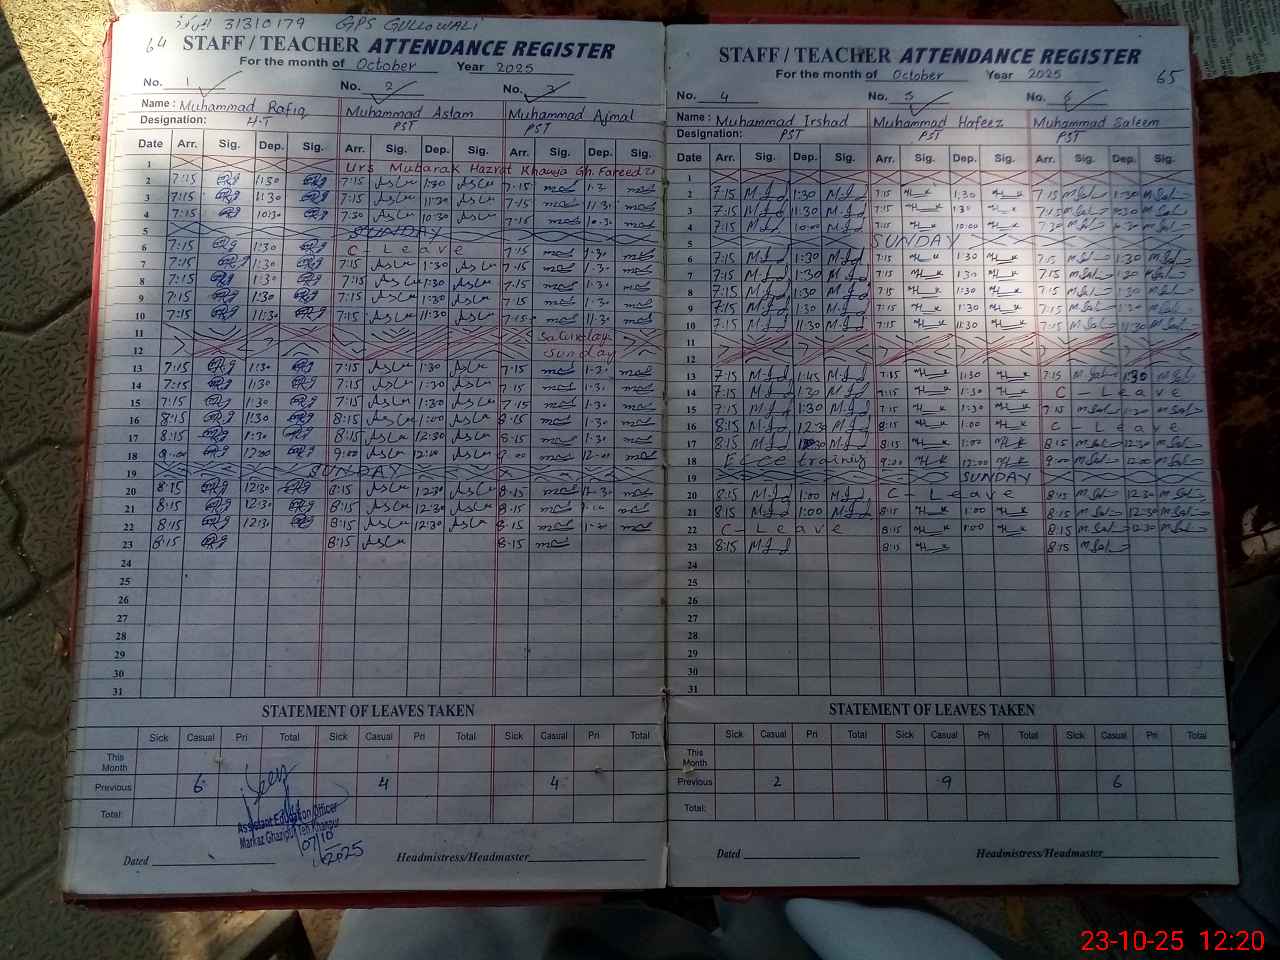 31310179 GPS GULLOWALI
64
STAFF / TEACHER ATTENDANCE REGISTER
For the month of October Year 2025
No. 1 No. 2 No. 3
Name: Muhammad Rafiq Muhammad Aslam Muhammad Ajmal
Designation: H.T PST PST
Date Arr. Sig. Dep. Sig. Arr. Sig. Dep. Sig. Arr. Sig. Dep. Sig.
1 Urs Mubarak Hazrat Khawja Gh. Fareed
2 7:15 1:30 7:15 1:30 7:15 1:3
3 7:15 11:30 7:15 11:30 7:15 11:3
4 7:15 10:30 7:30 10:30 7:15 10:30
5 SUNDAY
6 7:15 1:30 C - Leave 7:15 1:30
7 7:15 1:30 7:15 1:30 7:15 1:30
8 7:15 1:30 7:15 1:30 7:15 1:30
9 7:15 1:30 7:15 1:30 7:15 1:30
10 7:15 11:30 7:15 11:30 7:15 11:30
11 Saturday
12 Sunday
13 7:15 1:30 7:15 1:30 7:15 1:30
14 7:15 1:30 7:15 1:30 7:15 1:30
15 7:15 1:30 7:15 1:30 7:15 1:30
16 8:15 1:30 8:15 1:00 8:15 1:30
17 8:15 1:30 8:15 12:30 8:15 1:30
18 9:00 12:00 9:00 12:00 9:00 12:00
19 SUNDAY
20 8:15 12:30 8:15 12:30 8:15
21 8:15 12:30 8:15 12:30 8:15
22 8:15 12:30 8:15 12:30 8:15
23 8:15 8:15 8:15
24
25
26
27
28
29
30
31
STATEMENT OF LEAVES TAKEN
Sick Casual Pri Total Sick Casual Pri Total Sick Casual Pri Total
This Month
Previous 6 4 4
Total:
Assistant Education Officer
Markaz Ghazipur Teh Khanpur
07/10
2025
Dated Headmistress/Headmaster
STAFF / TEACHER ATTENDANCE REGISTER
For the month of October Year 2025
65
No. 4 No. 5 No. 6
Name: Muhammad Irshad Muhammad Hafeez Muhammad Saleem
Designation: PST PST PST
Date Arr. Sig. Dep. Sig. Arr. Sig. Dep. Sig. Arr. Sig. Dep. Sig.
1
2 7:15 1:30 7:15 1:30 7:15 1:30
3 7:15 11:30 7:15 1:30 7:15 11:30
4 7:15 10:00 7:15 10:00 7:30 10:30
5 SUNDAY
6 7:15 1:30 7:15 1:30 7:15 1:30
7 7:15 1:30 7:15 1:30 7:15 1:30
8 7:15 1:30 7:15 1:30 7:15 1:30
9 7:15 1:30 7:15 1:30 7:15 1:30
10 7:15 11:30 7:15 11:30 7:15 11:30
11
12
13 7:15 1:45 7:15 1:30 7:15 1:30
14 7:15 1:30 7:15 1:30 C - Leave
15 7:15 1:30 7:15 1:30 7:15 1:30
16 8:15 12:30 8:15 1:00 C - Leave
17 8:15 8:15 1:00 8:15 12:30
18 ECCE training 9:00 12:00 9:00 12:00
19 SUNDAY
20 8:15 1:00 C - Leave 8:15 12:30
21 8:15 1:00 8:15 1:00 8:15 12:30
22 C - Leave 8:15 1:00 8:15 12:30
23 8:15 8:15 8:15
24
25
26
27
28
29
30
31
STATEMENT OF LEAVES TAKEN
Sick Casual Pri Total Sick Casual Pri Total Sick Casual Pri Total
This Month
Previous 2 9 6
Total:
Dated Headmistress/Headmaster
23-10-25 12:20